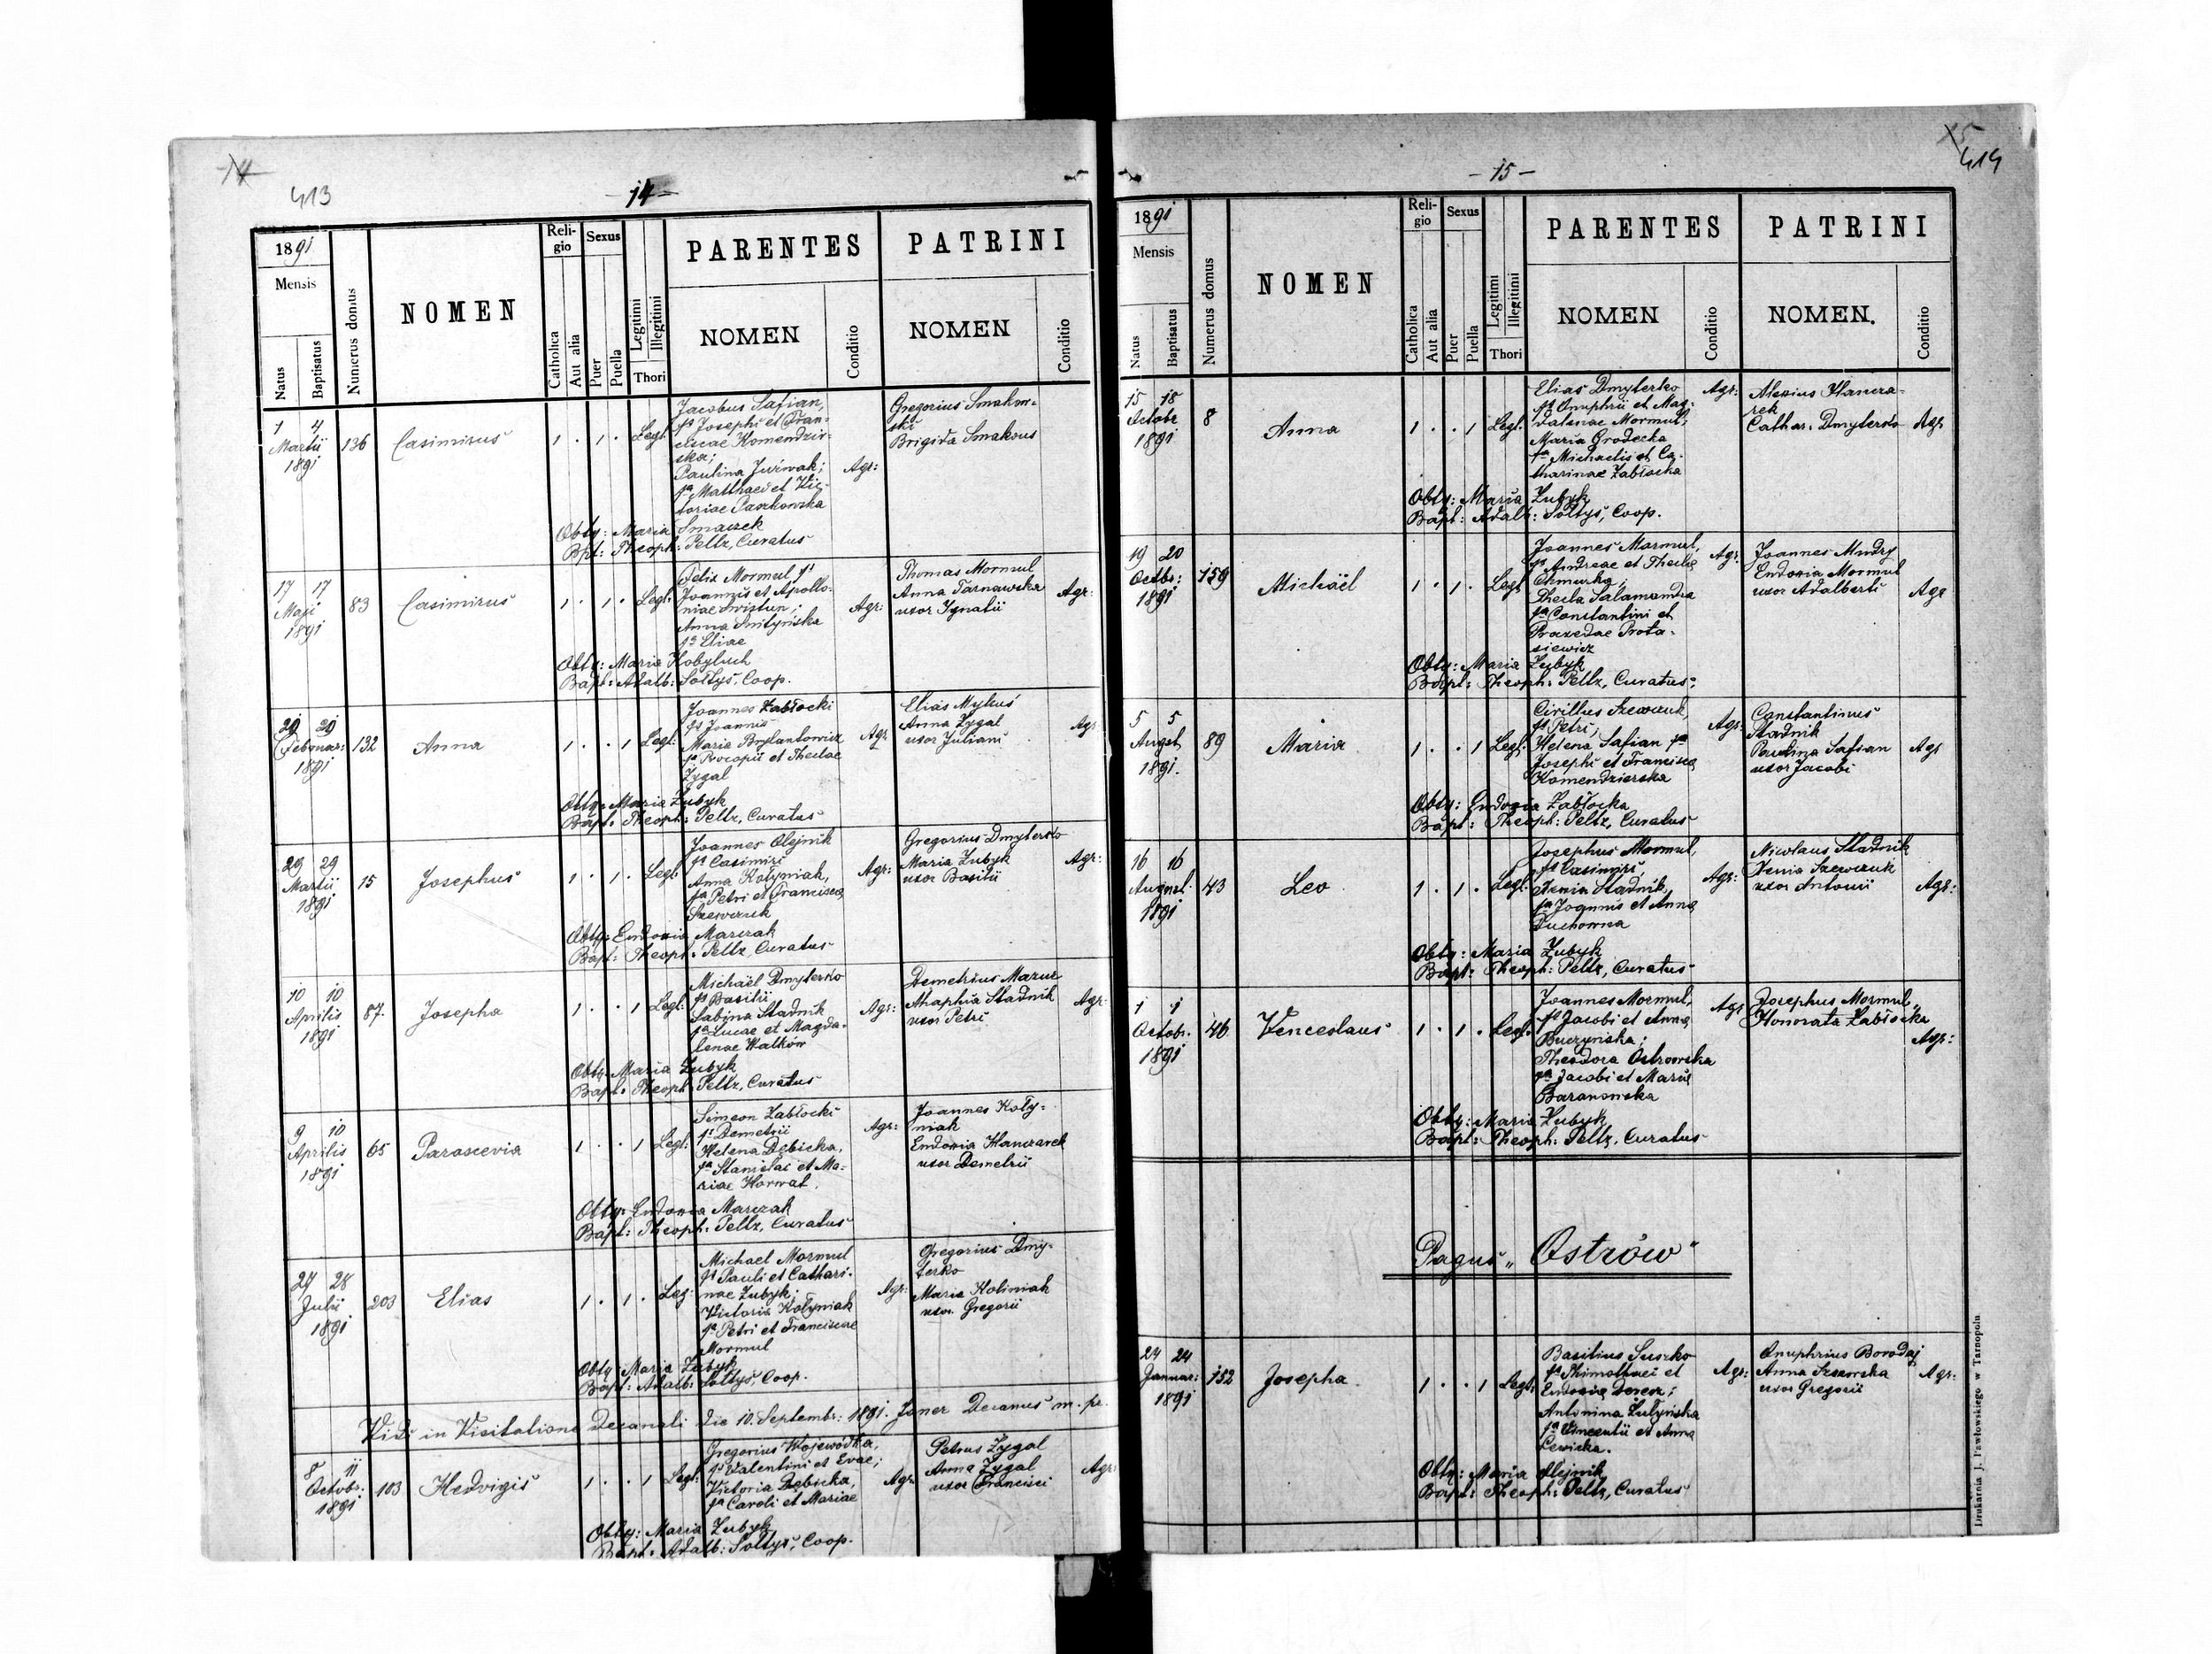 413
- 14 -
1891
Mensis
Natus
Baptisatus
Numerus domus
NOMEN
Religio
Catholica
Aut alia
Sexus
Puer
Puella
Legitimi
Illegitimi
Thori
PARENTES
NOMEN
Conditio
PATRINI
NOMEN
Conditio
1 4
Martii
1891
136
Casimirus
1 . 1 .
Legt.
Jacobus Safian,
fs Josephi et Fran-
ciscae Komendzir-
ska;
Paulina Juśwak;
fa Matthaei et Vic-
toriae Paszkowska
Agr:
Gregorius Smakow-
ski
Brigida Smakous
Obty: Maria Smaczek
Bpt: Theoph: Peltz, Curatus
17 17
Maji
1891
83
Casimirus
1 . 1 .
Legt.
Felix Mormul fs
Joannis et Apollo-
niae Swistun;
Anna Smityńska
fa Eliae
Agr:
Thomas Mormul
Anna Tarnawska
uxor Ignatii
Agr:
Obty: Maria Kobyluch
Bapt: Adalb: Sołtys, Coop.
29 29
Februar:
1891
132
Anna
1 . . 1
Legt:
Joannes Zabłocki
fs Joannis
Maria Brylantowicz
fa Procopii et Theclae
Zygal
Agr
Elias Mykus
Anna Zygal
uxor Juliani
Agr
Obty: Maria Zubyk
Bapt: Theoph: Peltz, Curatus
29 29
Martii
1891
15
Josephus
1 . 1 .
Legt:
Joannes Olejnik
fs Casimiri
Anna Kołyniak,
fa Petri et Francisca
Szewczuk
Agr:
Gregorius Dmyterko
Maria Zubyk
uxor Basilii
Agr:
Obty: Eudoxia Marczak
Bapt: Theoph: Peltz, Curatus
10 10
Aprilis
1891
87.
Josepha
1 . . 1
Legt:
Michaël Dmyterko
fs Basilii
Sabina Stadnik
fa Lucae et Magda-
lenae Walków
Agr:
Demetrius Mazur
Maphia Stadnik
uxor Petri
Agr:
Obty: Maria Zubyk
Bapt: Theoph: Peltz, Curatus
9 10
Aprilis
1891
65
Parascevia
1 . . 1
Legt:
Simeon Zabłocki
fs Demetrii
Helena Dębicka,
fa Stanislai et Ma-
riae Horwat.
Agr:
Joannes Koły-
niak
Eudoxia Hanczarek
uxor Demetrii
Obty: Eudoxia Marczak
Bapt: Theoph: Peltz, Curatus
27 28
Julii
1891
203
Elias
1 . 1 .
Leg:
Michael Mormul
fs Pauli et Cathari-
nae Zubyk;
Victoria Kołyniak
fa Petri et Franciscae
Mormul
Agr:
Gregorius Dmy-
terko
Maria Koliniak
uxor Gregorii
Obty: Maria Zubyk
Bapt: Adalb: Sołtys, Coop.
Vidi in Visitatione Decanali die 10. Septembr: 1891. Decanus m. pr.
8 11
Octobr:
1891
103
Hedvigis
1 . . 1
Legt:
Gregorius Wojewódka,
fs Valentini et Evae;
Victoria Dębicka,
fa Caroli et Mariae
Agr:
Petrus Zygal
Anna Zygal
uxor Francisci
Agr:
Obty: Maria Zubyk
Bapt: Adalb: Sołtys, Coop.
414
- 15 -
1891
Mensis
Natus
Baptisatus
Numerus domus
NOMEN
Religio
Catholica
Aut alia
Sexus
Puer
Puella
Legitimi
Illegitimi
Thori
PARENTES
NOMEN
Conditio
PATRINI
NOMEN.
Conditio
15 18
Octobr
1891
8
Anna
1 . . 1
Legt.
Elias Dmyterko
fs Onuphrii et Mag-
dalenae Mormul;
Maria Grodecka
fa Michaelis et Ca-
tharinae Zabłocka
Agr:
Alexius Hancza-
rek
Cathar: Dmyterko
Agr
Obty: Maria Zubyk
Bapt: Adalb: Sołtys, Coop.
19 20
Octbr:
1891
159
Michaël
1 . 1 .
Legt
Joannes Mormul,
fs Andreae et Thecla
Chmurka;
Thecla Salamandra
fa Constantini et
Praxedae Prota-
siewicz
Agr:
Joannes Mudry
Eudoxia Mormul
uxor Adalberti
Agr
Obty: Maria Zubyk
Bapt: Theoph: Peltz, Curatus:
5 5
Augst
1891.
89
Maria
1 . . 1
Legt:
Cirillus Szewczuk,
fs Petri;
Helena Safian fa
Josephi et Francisca
Komendzierska
Agr:
Constantinus
Stadnik
Paulina Safian
uxor Jacobi
Agr
Obty: Eudoxia Zabłocka
Bapt: Theoph: Peltz, Curatus
16 16
August.
1891
43
Leo
1 . 1 .
Legt:
Josephus Mormul,
fs Casimiri,
Xenia Stadnik,
fa Joannis et Anna
Duchowna
Agr:
Nicolaus Stadnik
Xenia Szewczuk
uxor Antonii
Agr:
Obty: Maria Zubyk
Bapt: Theoph: Peltz, Curatus
1 1
Octob:
1891
46
Venceslaus
1 . 1 .
Legt.
Joannes Mormul,
fs Jacobi et Anna
Buczyńska;
Theodora Ostrowska
fa Jacobi et Maria
Baranowska
Agr
Josephus Mormul,
Honorata Zabłocka
Agr:
Obty: Maria Zubyk
Bapt: Theoph: Peltz, Curatus
Pagus „Ostrów"
24 24
Januar:
1891
152
Josepha
1 . . 1
Legt:
Basilius Suszko
fs Thimothaei et
Eudoxia Derecz;
Antonina Lutyńska
fa Vincentii et Anna
Lewicka.
Agr:
Onuphrius Borodaj
Anna Szewska
uxor Gregorii
Agr:
Obty: Maria Olejnik
Bapt: Theoph: Peltz, Curatus
Drukarnia J. Pawłowskiego w Tarnopolu